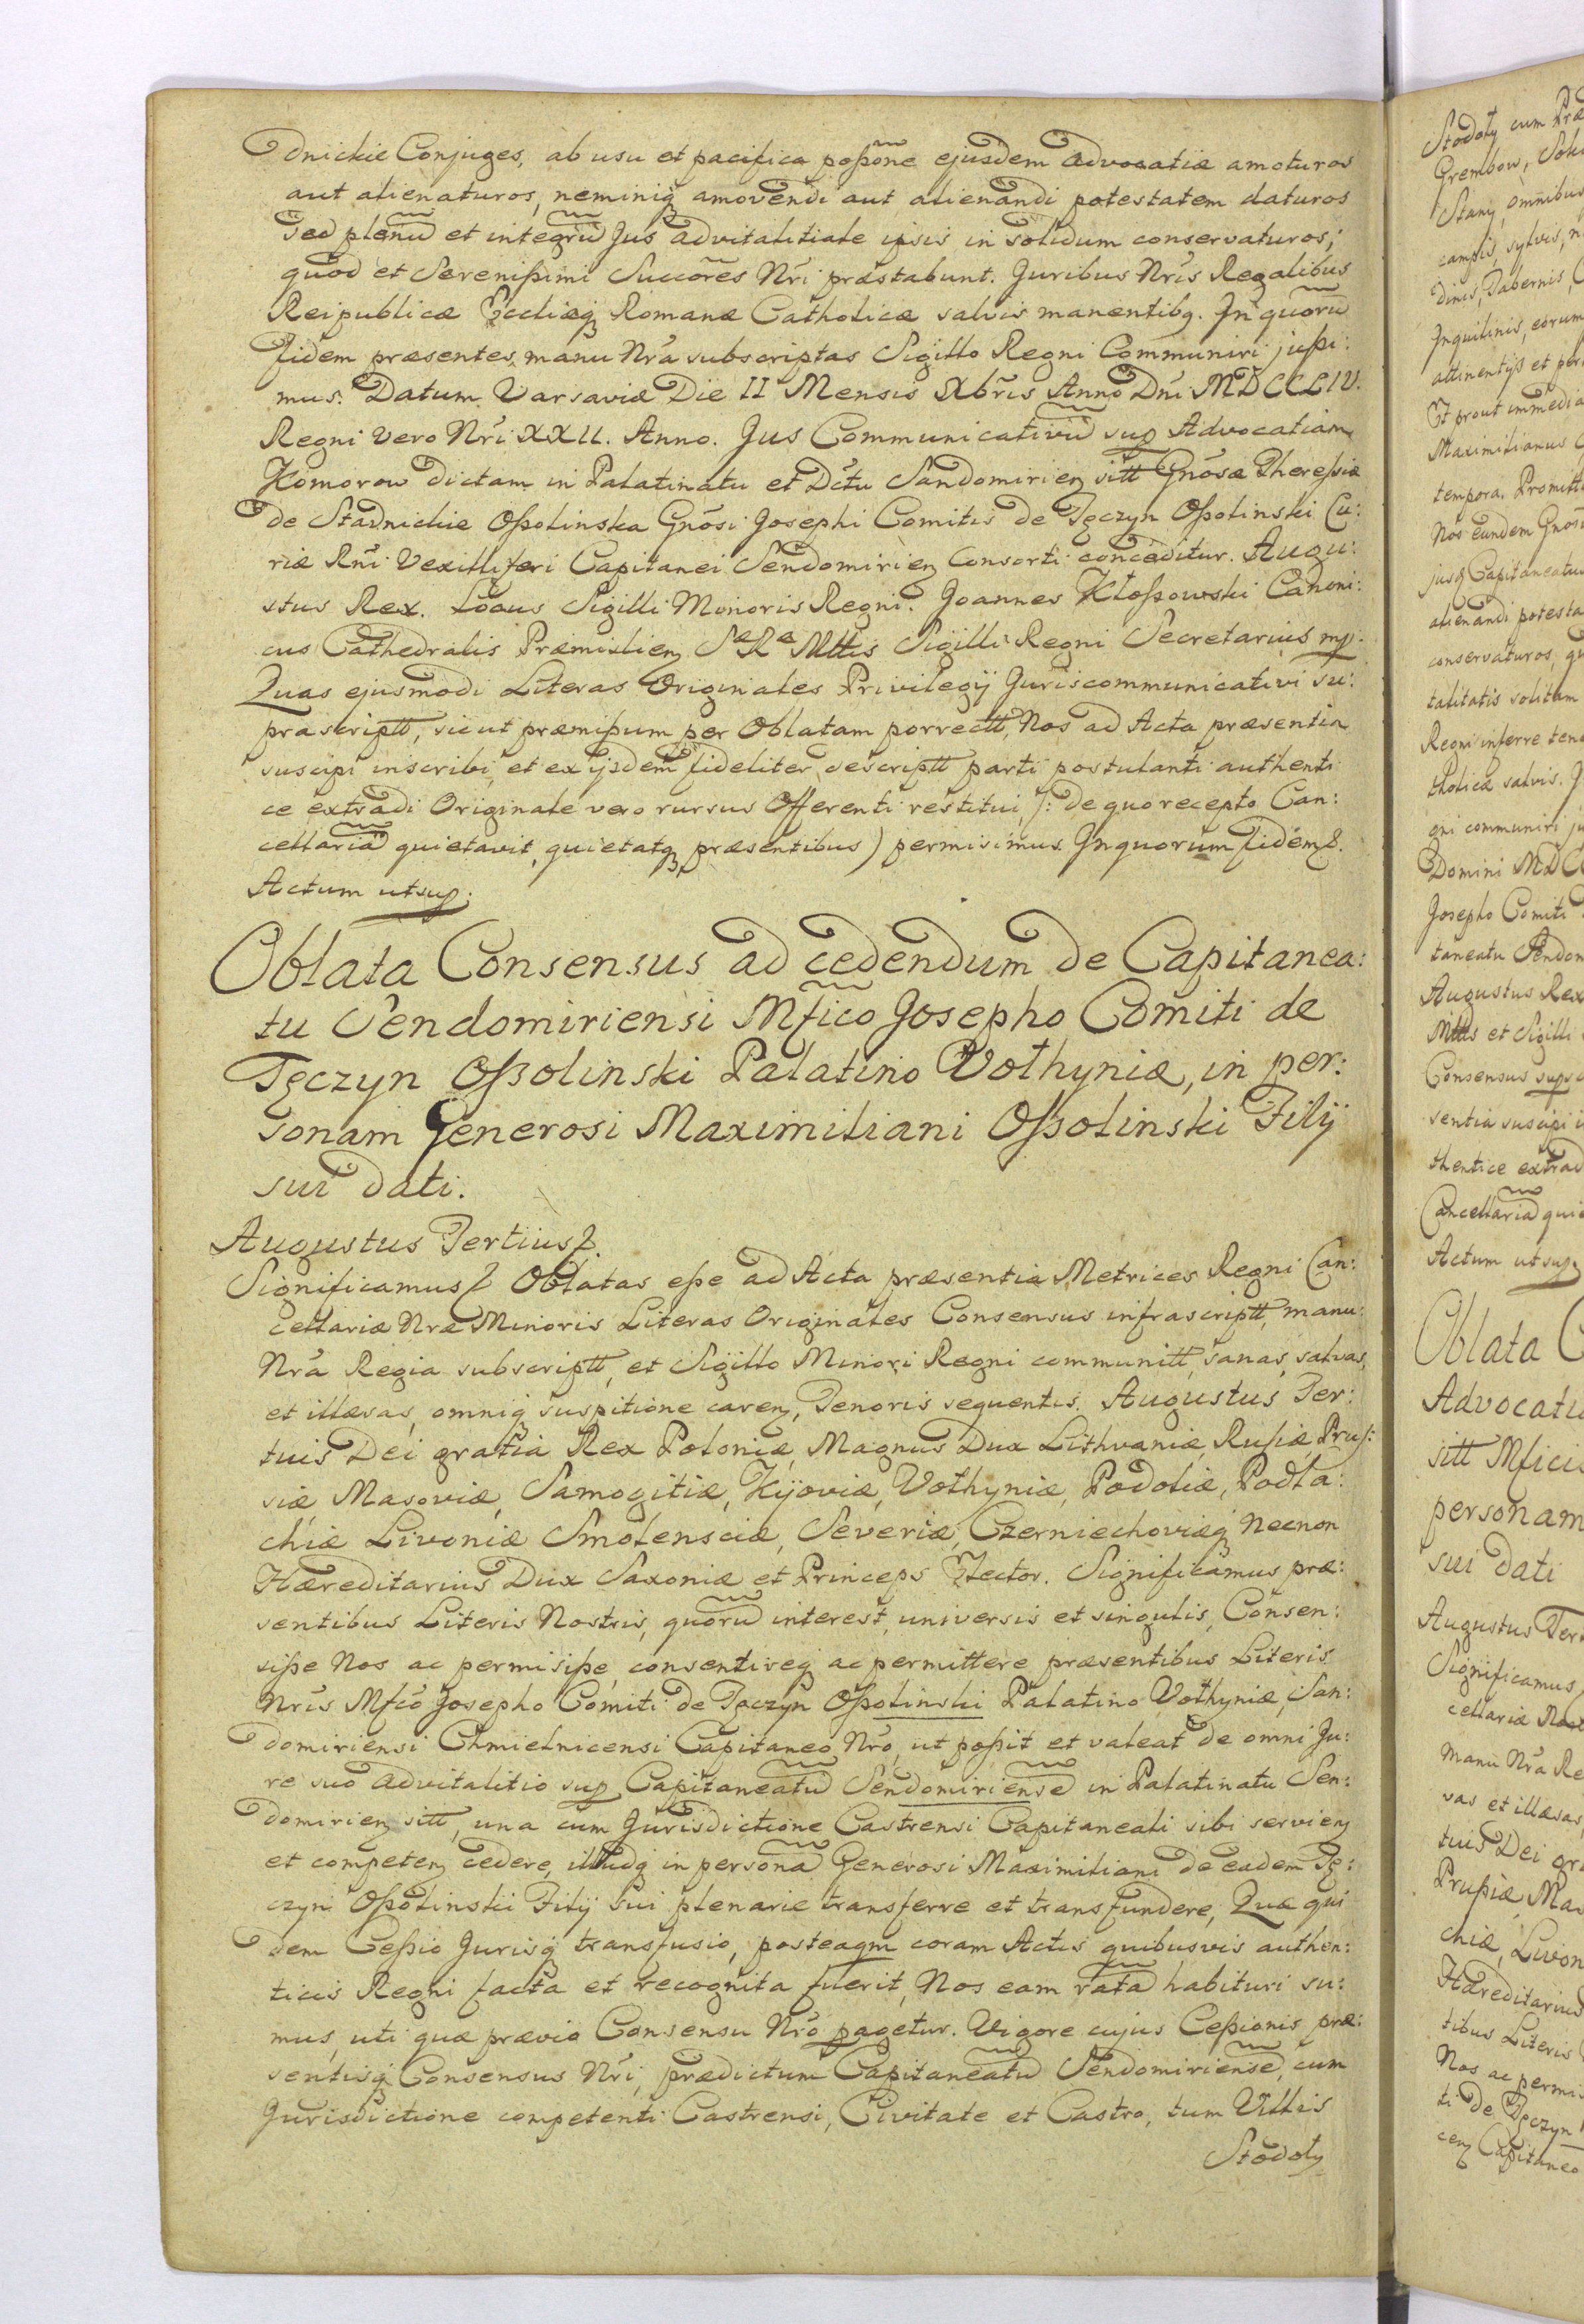 dnickie Conjuges, ab usu et pacifica poßõne ejusdem advocatiæ amoturos
aut alienaturos, neminiq; amovendi aut alienandi potestatem daturos
sed plenũ et integrũ Jus advitalitiale ipsis in solidum conservaturos;
quod et Serenißimi Succõres Nrĩ præstabunt. Juribus Nrĩs Regalibus
Reipublicæ Eccliæq; Romanæ Catholicæ salvis manentibq. In quorũ
fidem præsentes, manu Nrã subscriptas Sigillo Regni Communiri jußi:
mus. Datum Varsaviæ Die II Mensis Xbrĩs Anno Dnĩ MDCCLIV.
Regni vero Nrĩ XXII. Anno. Jus Communicativũ sup Advocatiam
Komorow dictam in Palatinatu et Dctũ Sandomirien sitt Gnõsæ Thereßiæ
de Stadnickie Oßolinska Gnõsi Josephi Comitis de Tęczyn Oßolinski Cu:
riæ Rnĩ Vexilliferi Capitanei Sendomirien Consorti conceditur. Augu:
stus Rex. Locus Sigilli Minoris Regni. Joannes Kłoßowski Canoni:
cus Cathedralis Præmislien Sæ Ræ Mttis Sigilli Regni Secretarius mp:
Quas ejusmodi Literas Originales Privilegÿ Juriscommunicativi su:
prascriptt, sicut præmißum per Oblatam porrectt, Nos ad Acta præsentia
suscipi inscribi, et ex ijsdem fideliter descriptt parti postulanti authenti
ce extradi Originale vero rursus Offerenti restitui, /: de quo recepto Can:
cellariã quietavit, quietatq; præsentibus) permisimus. In quorum fidem &.
Actum ut sup.
Oblata Consensus ad cedendum de Capitanea:
tu Sendomiriensi Mfĩco Josepho Comiti de
Tęczyn Oßolinski Palatino Wołhyniæ, in per:
sonam Generosi Maximiliani Oßolinski Filÿ
sui dati.
Augustus Tertius &.
Significamus & Oblatas eße ad Acta præsentia Metrices Regni Can:
cellariæ Nræ Minoris Literas Originales Consensus infrascriptt, manu:
Nrã Regia subscriptt, et Sigillo Minori Regni communitt, sanas, salvas,
et illæsas, omniq; suspitione caren, Tenoris sequentis. Augustus Ter:
tuis Dei gratia Rex Poloniæ, Magnus Dux Lithvaniæ, Rußiæ, Pruſ:
siæ Masoviæ, Samogitiæ, Kÿoviæ, Vołhyniæ, Podoliæ, Podla:
chiæ Livoniæ Smolensciæ, Severiæ, Czerniechoviæq; Necnon
Hæreditarius Dux Saxoniæ et Princeps Elector. Significamus præ:
sentibus Literis Nostris, quorũ interest, universis et singulis, Consen:
siße Nos ac permisiße, consentireq; ac permittere præsentibus Literis
Nrĩs Mfcõ Josepho Comiti de Tęczyn Oßolinski Palatino Vołhyniæ, San:
domiriensi Chmielnicensi Capitaneo Nrõ, ut poßit et valeat de omni Ju:
re suo advitalitio sup Capitaneatũ Sendomiriense in Palatinatu Sen:
domirien sitt, una cum Jurisdictione Castrensi Capitaneali sibi servien
et competen cedere, illudq; in personã Generosi Maximiliani de eadem Tę:
czyn Oßolinski Filÿ sui plenarie transferre et transfundere, Quæ qui
dem Ceßio Jurisq; transfusio, posteaqm coram Actis quibusvis authen:
ticis Regni facta et recognita fuerit, Nos eam ratã habituri su:
mus, uti quæ prævio Consensu Nrõ pagetur. Vigore cujus Ceßionis præ:
sentisq; Consensus Nrĩ, prædictum Capitaneatũ Sendomiriense, cum
Jurisdictione competenti Castrensi, Civitate et Castro, tum Villis
Stodoły
Stodoły cum
Grembow,
Stany, omnibus
campis, sylvis,
Tabernis,
Inquilinis, eorum
attinentijs et
Et prout immedia
Maximilianus
tempora. Promitti
Nos eundem Gnos
jusq Capitaneatus
alienandi potesta
conservaturos,
talitatis solitam
Regni inferre
tholicæ salvis.
gni communiri
Domini MDCC
Josepho Comiti
taneatu Sendom
Augustus Rex
Mttis et Sigilli
Consensus supsc
sentia suscipi
thentice extrad
Cancellariã qui
Actum ut sup.
Oblata C
Advocatu
sitt Mficis
personam
sui dati
Augustus Ter
Significamus
cellariæ
Manu Nrã Re
vas et illæsas,
tuis Dei gra
Prußiæ, Mas
chiæ, Livon
Hæreditarius
tibus Literis
Nos ac permis
ti de Tęczyn
cen Capitaneo